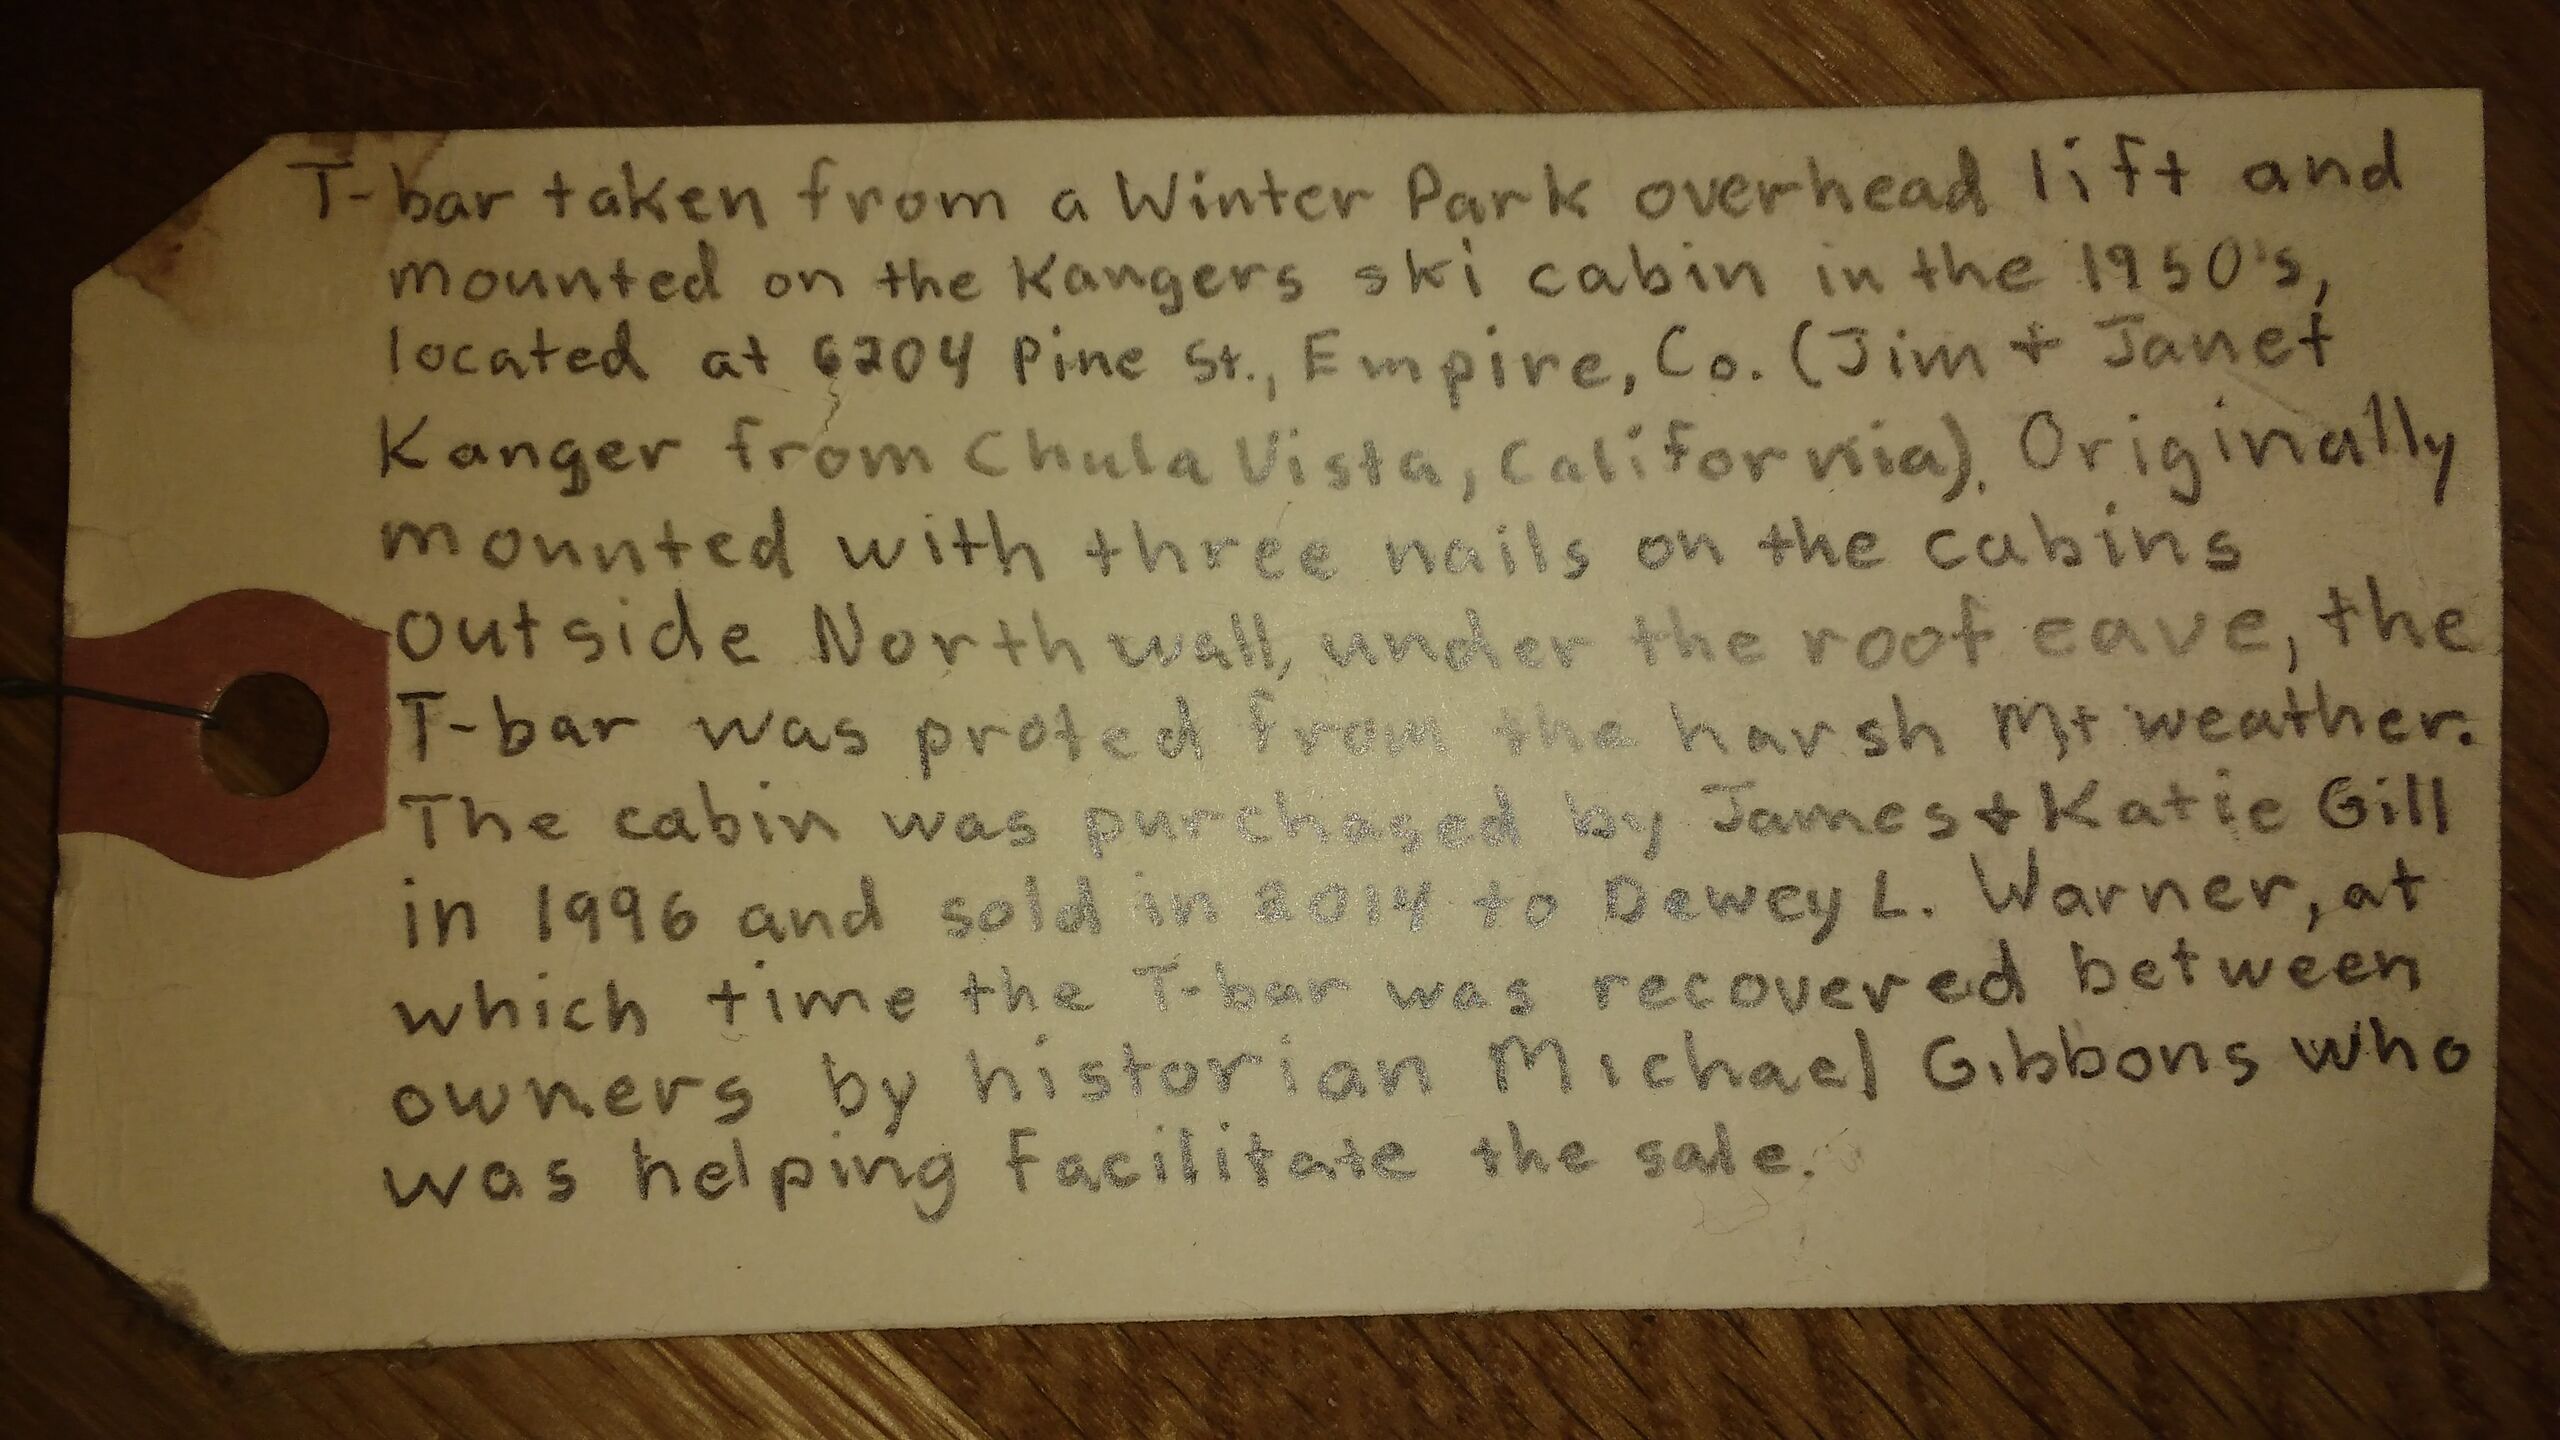 T-bar taken from a Winter Park overhead lift and
mounted on the Kangers ski cabin in the 1950's,
located at 6204 Pine St., Empire, Co. (Jim + Janet
Kanger from Chula Vista, California). Originally
mounted with three nails on the cabins
outside North wall, under the roof eave, the
T-bar was proted from the harsh Mt weather.
The cabin was purchased by James + Katie Gill
in 1996 and sold in 2014 to Dewey L. Warner, at
which time the T-bar was recovered between
owners by historian Michael Gibbons who
was helping Facilitate the sale.